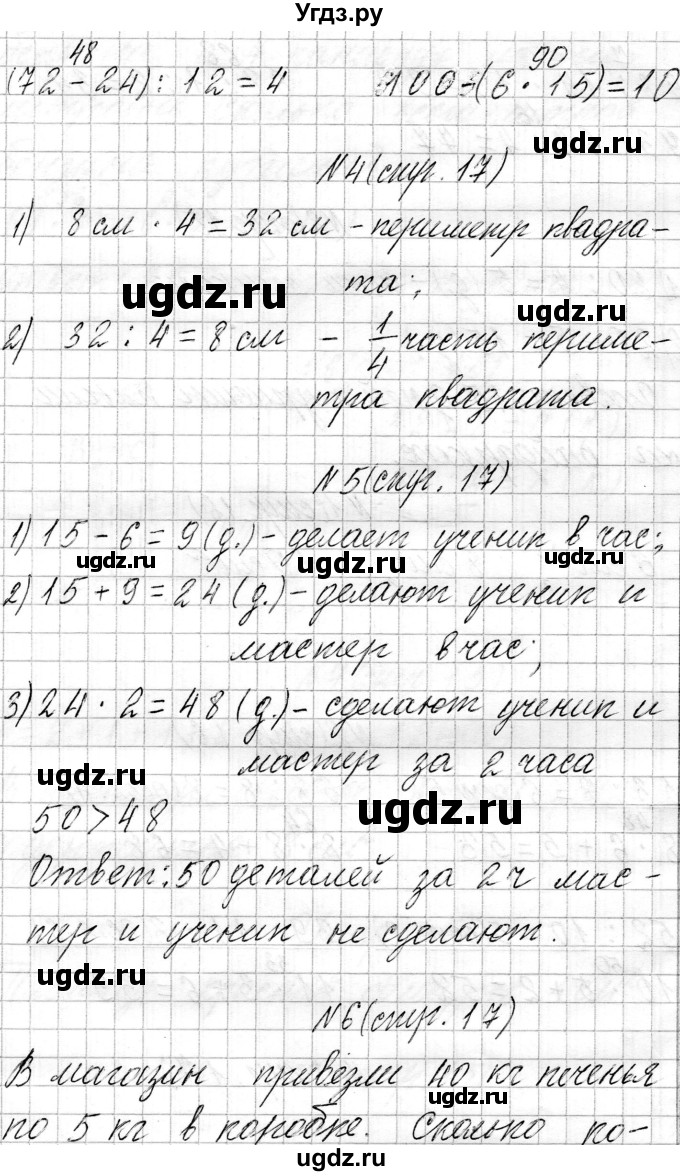 Угдз.ру
48 90
(72 - 24) : 12 = 4 100 - (6 · 15) = 10
ugdz.ru
N4 (стр. 17)
1) 8 см · 4 = 32 см - периметр квадра-
та;
ugdz.ru
ugdz.ru
2) 32 : 4 = 8 см - 1/4 часть периме-
тра квадрата.
ugdz.ru
N5 (стр. 17)
1) 15 - 6 = 9 (д.) - делает ученик в час;
ugdz.ru ugdz.ru
2) 15 + 9 = 24 (д.) - делают ученик и
мастер в час;
3) 24 · 2 = 48 (д.) - сделают ученик и
мастер за 2 часа
ugdz.ru
ugdz.ru
50 > 48
Ответ: 50 деталей за 2 ч мас-
тер и ученик не сделают.
ugdz.ru
N6 (стр. 17)
В магазин привезли 40 кг печенья
по 5 кг в коробке. Сколько ко-
ugdz.ru